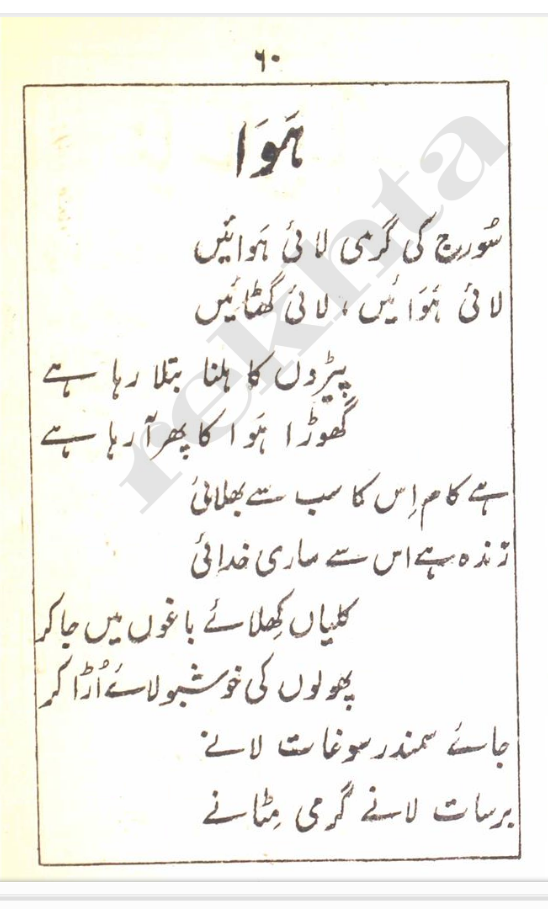 ۶۰
ہَوَا
سُورج کی گرمی لائی ہَوائیں
لائی ہَوَائیں، لائی گھٹائیں
پیڑوں کا ہلنا بتلا رہا ہے
گھوڑا ہَوا کا پھر آ رہا ہے
ہے کام اِس کا سب سے بھلائی
زندہ ہے اس سے ساری خدائی
کلیاں کِھلائے باغوں میں جا کر
پھولوں کی خوشبو لائے اُڑا کر
جائے سمندر سوغات لانے
برسات لانے گرمی مِٹانے
rekhta